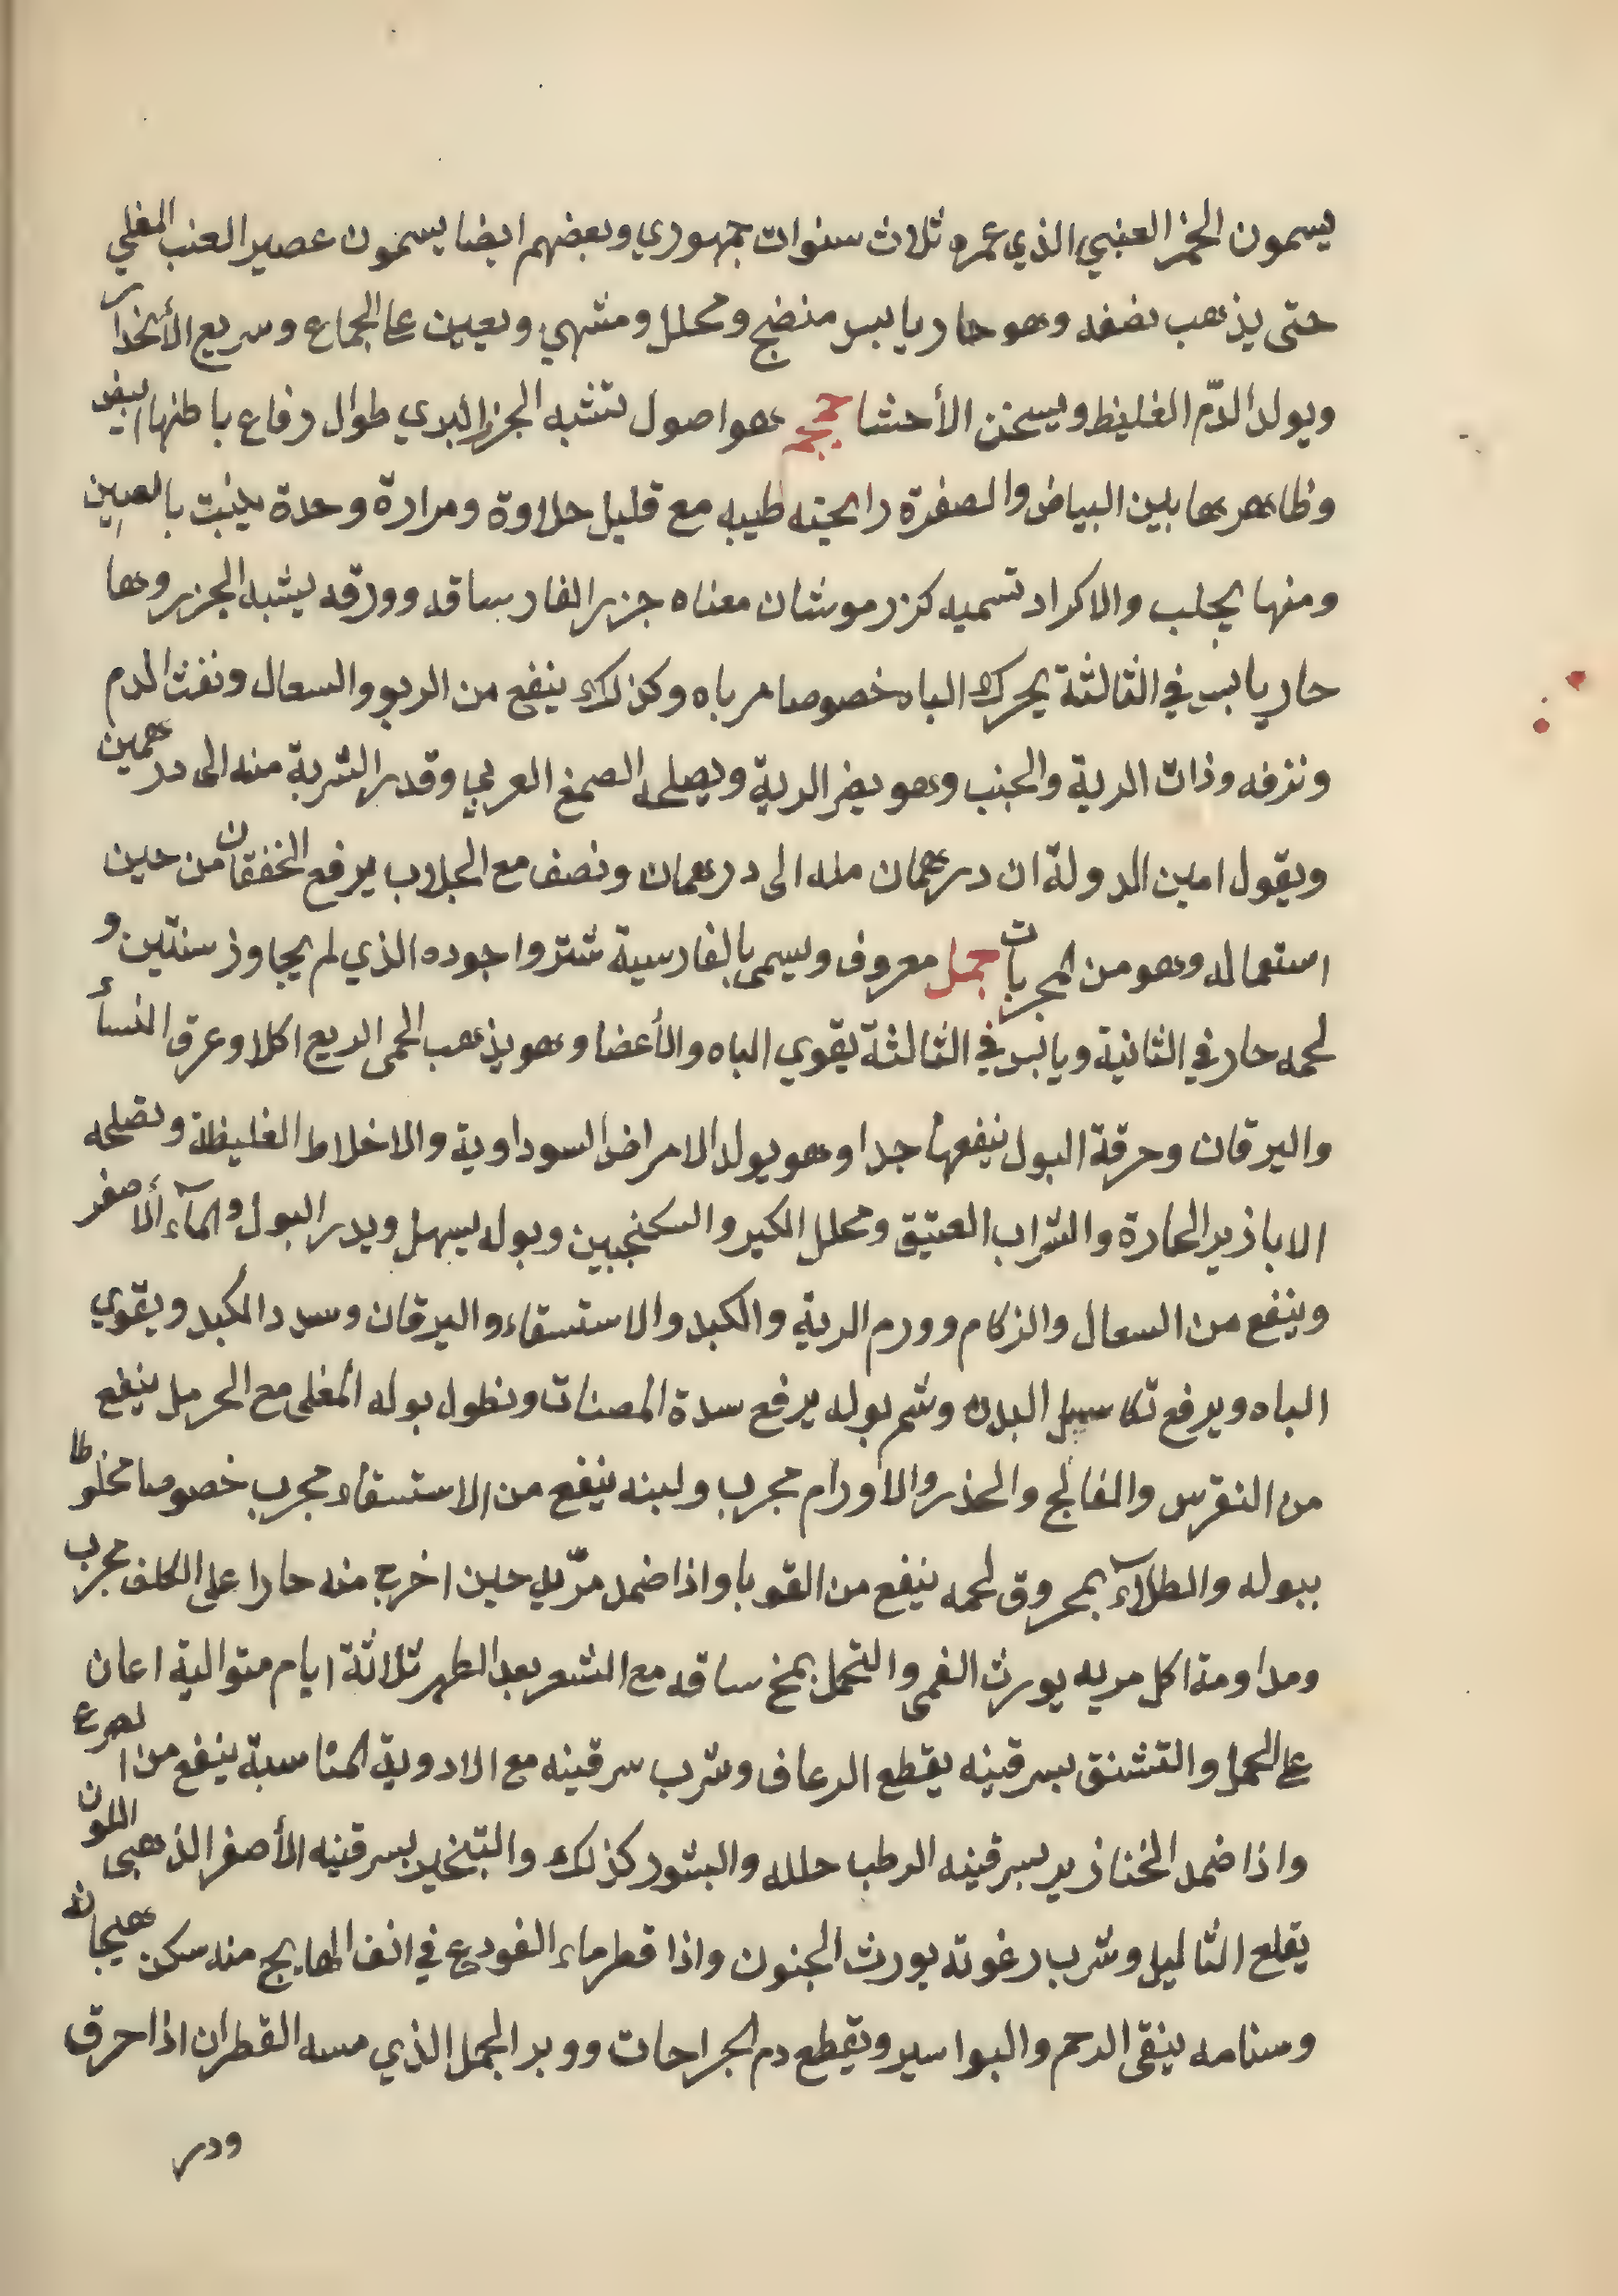 يسمون الخمر العنبي الذي عمره ثلاث سنوات جمهوري وبعضهم ايضا يسمون عصير العنب المغلي
حتى يذهب نصفه وهو حار يابس منضج ومحلل ومشهي ويعين عالجماع وسريع الأنحدار
ويولد الدّم الغليظ ويسخن الأحشا هو اصول تشبه الجزر البري طوال رفاع باطنها ابيض
وظاهرها بين البياض والصفرة رايحته طيبه مع قليل حلاوة ومرارة وحدة ينبت بالصين
ومنها يجلب والاكراد تسميه كزر موشان معناه جزر الفار ساقه وورقه يشبه الجزر وها
حار يابس في الثالثة يحرك الباه خصوصا مرباه وكذلك ينفع من الربو والسعال ونفث الدم
ونزفه وذات الرية والجنب وهو يضر الرية ويصلحه الصمغ العربي وقدر الشربة منه الى درهمين
ويقول امين الدولة ان درهمان منه الى درهمان ونصف مع الجلاب يرفع الخفقان من حين
استعماله وهو من المجربات جمل معروف ويسمى بالفارسية شتر واجوده الذي لم يجاوز سنتين و
لحمه حار في الثانية ويابس في الثالثة يقوي الباه والأعضا وهو يذهب الحمى الربع اكلا وعرق النسأ
واليرقان وحرقة البول ينفعها جدا وهو يولد الامراض السوداوية والاخلاط الغليظة وتصلحه
الابازير الحارة والشراب العتيق ومحلل الكير والسكنجبين وبوله يسهل ويدر البول والمآء الأصفر
وينفع من السعال والزكام وورم الرية والكبد والاستسقاء واليرقان وسدد الكبد ويقوي
الباه ويرفع تكاسل البدن وشم بوله يرفع سدة المصنات ونطول بوله المغلى مع الحرمل ينفع
من النقرس والفالج والخذر والاورام مجرب ولبنه ينفع من الاستسقاء مجرب خصوصا مخلوطا
ببوله والطلآء بمحروق لحمه ينفع من القوبا واذا ضمد مرّيه حين اخرج منه حارا على الكلف مجرب
ومداومة اكل مريه يورث الغمى والتحمل بمخ ساقه مع الشعر بعد الطهر ثلاثة ايام متوالية اعان
عالحمل والتشنق بسرقينه يقطع الرعاف وشرب سرقينه مع الادوية المناسبة ينفع من الصرع
واذا ضمد الخنازير بسرقينه الرطب حلله والبثور كذلك والتبخير بسرقينه الأصفر الذهبى اللون
يقلع الثاليل وشرب رغوته يورث الجنون واذا قطر ماء الفودع في انف الهايج منه سكن هيجانه
وسنامه ينقى الرحم والبواسير ويقطع دم الجراحات ووبر الجمل الذي مسه القطران اذا حرق
ودر